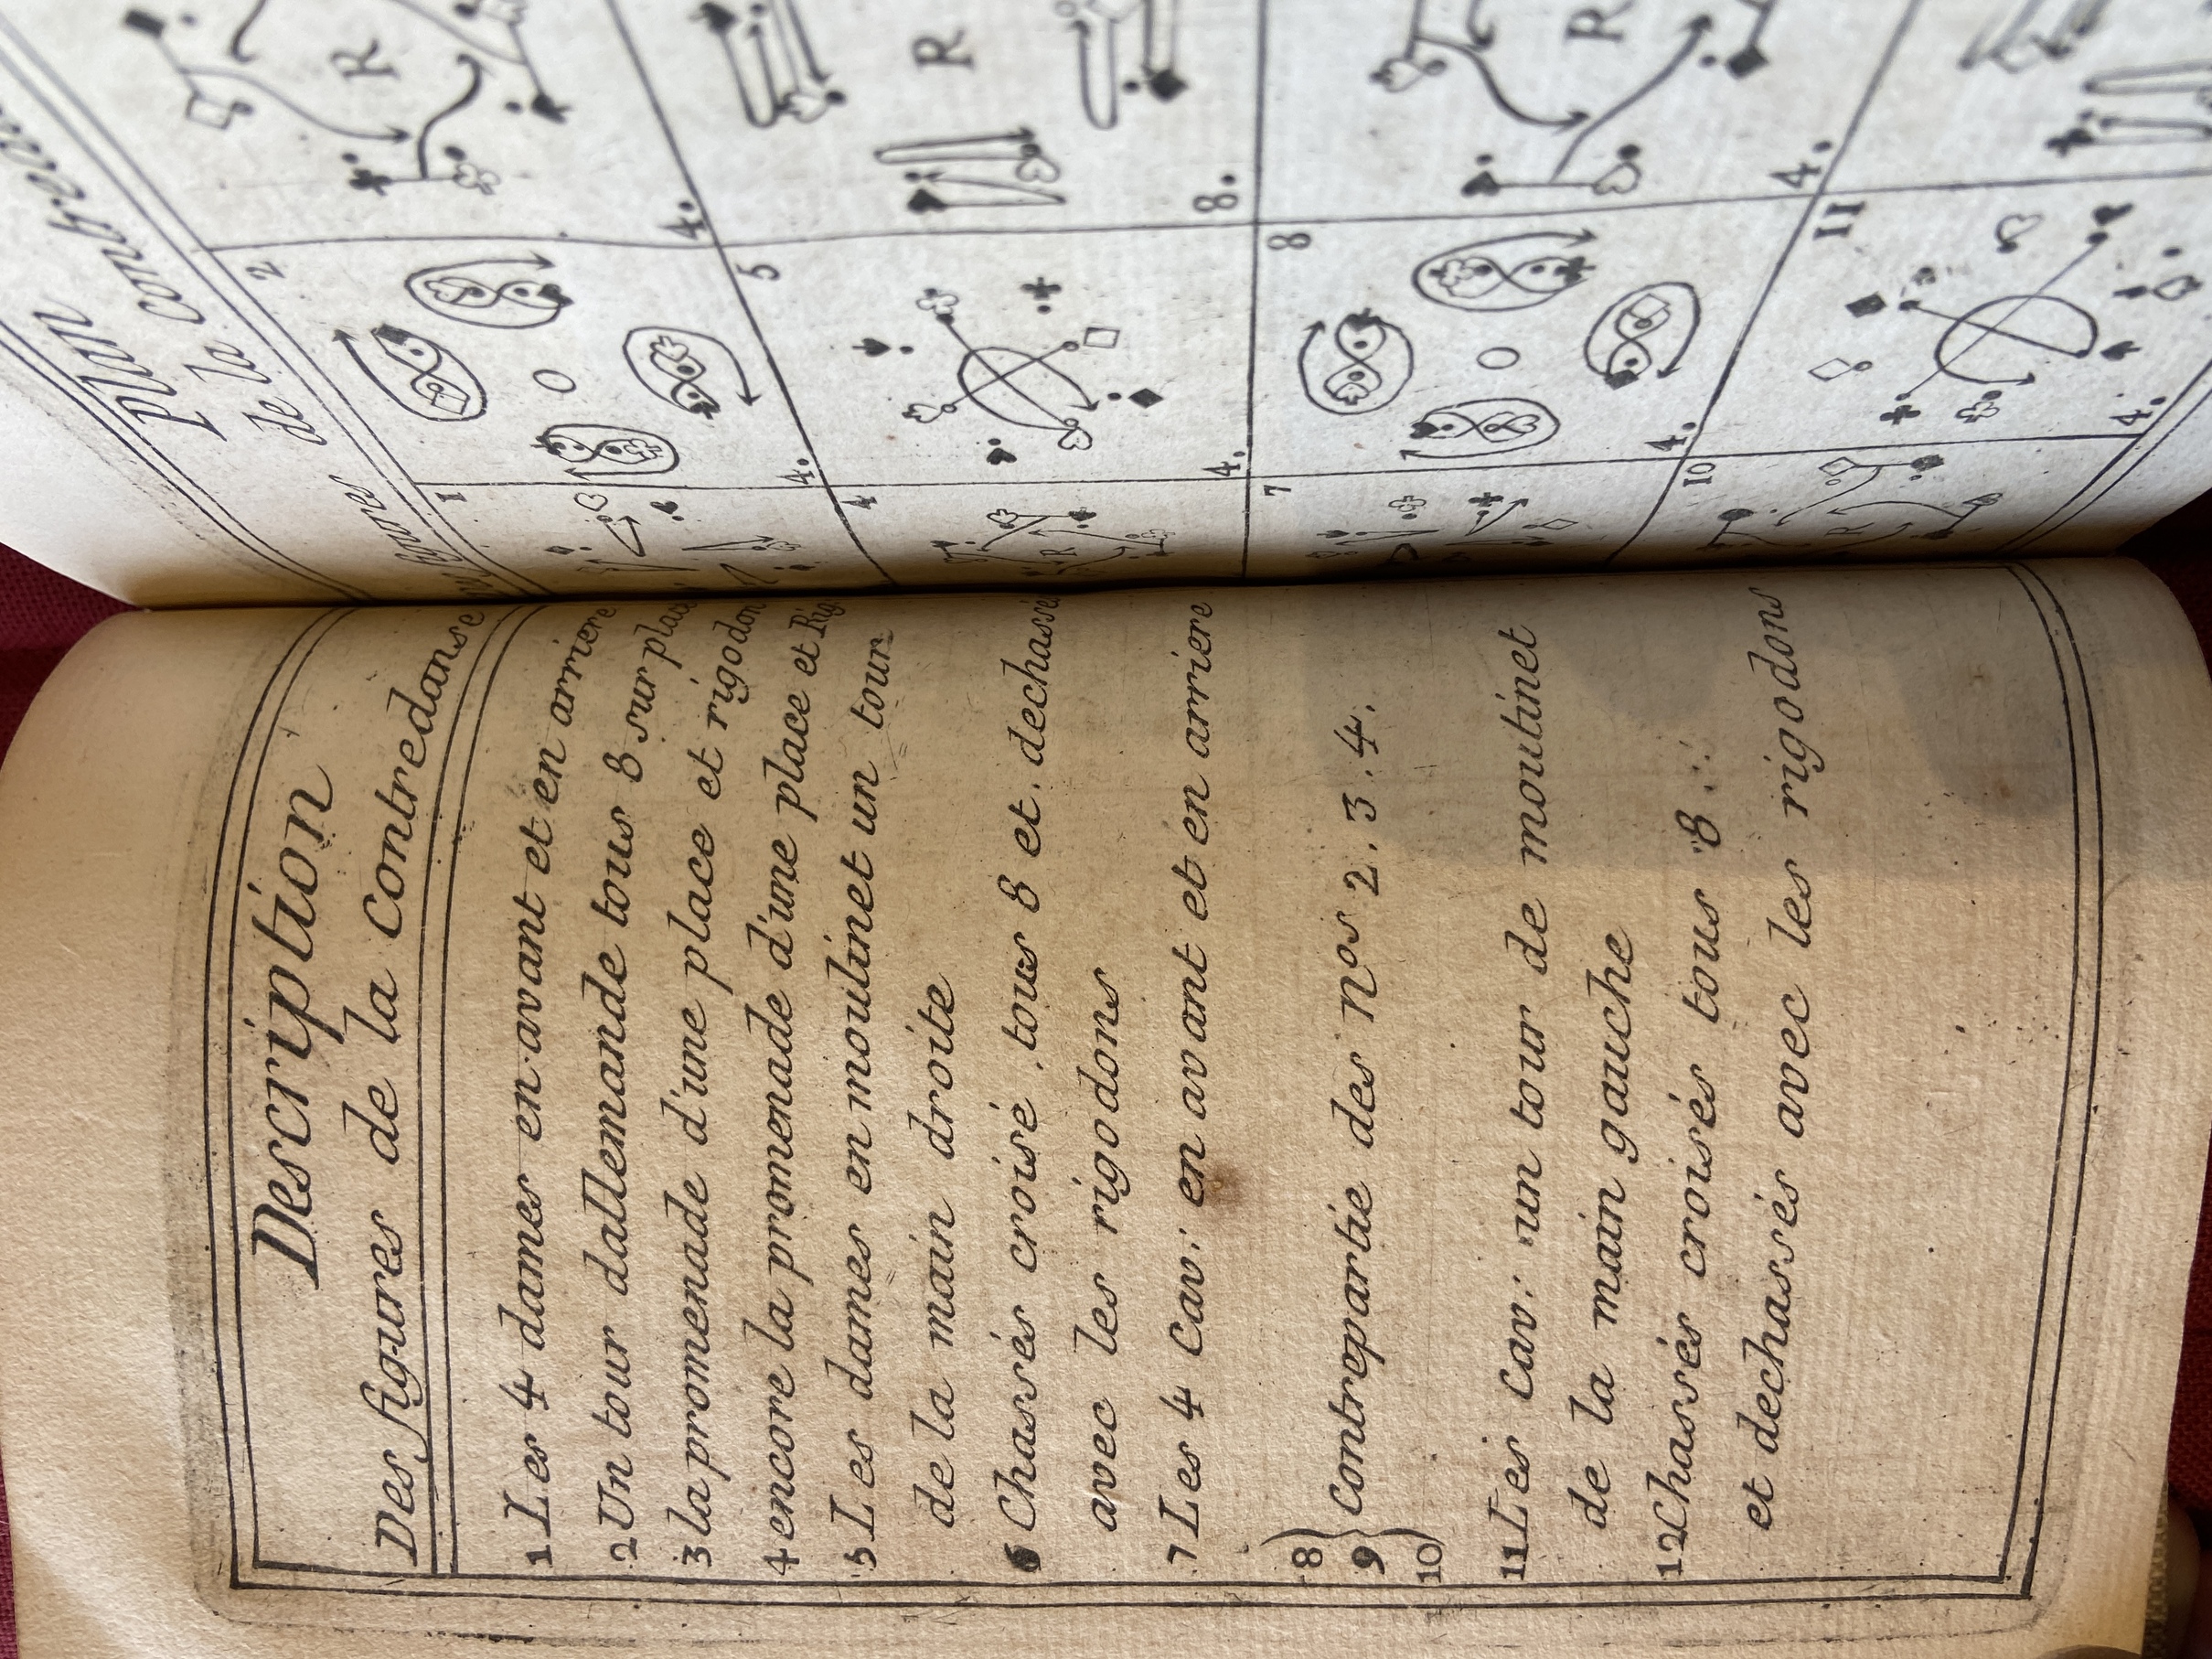 Description
Des figures de la contredanse
1 Les 4 dames en avant et en arriere
2 Un tour dallemande tous 8 sur place
3 la promenade d'une place et rigodon
4 encore la promenade d'une place et Rig
5 Les dames en moulinet un tour
de la main droite
6 Chassés croisé tous 8 et dechassé
avec les rigodons
7 Les 4 Cav: en avant et en arriere
8
9 Contrepartie des Nos 2. 3. 4.
10
11 Les Cav: un tour de moulinet
de la main gauche
12 Chassés croisés tous 8
et dechassés avec les rigodons
Plan
de la
1
2
4.
4.
R
4
5
4.
8.
R
R
7
8
4.
4.
R
10
11
4.
R